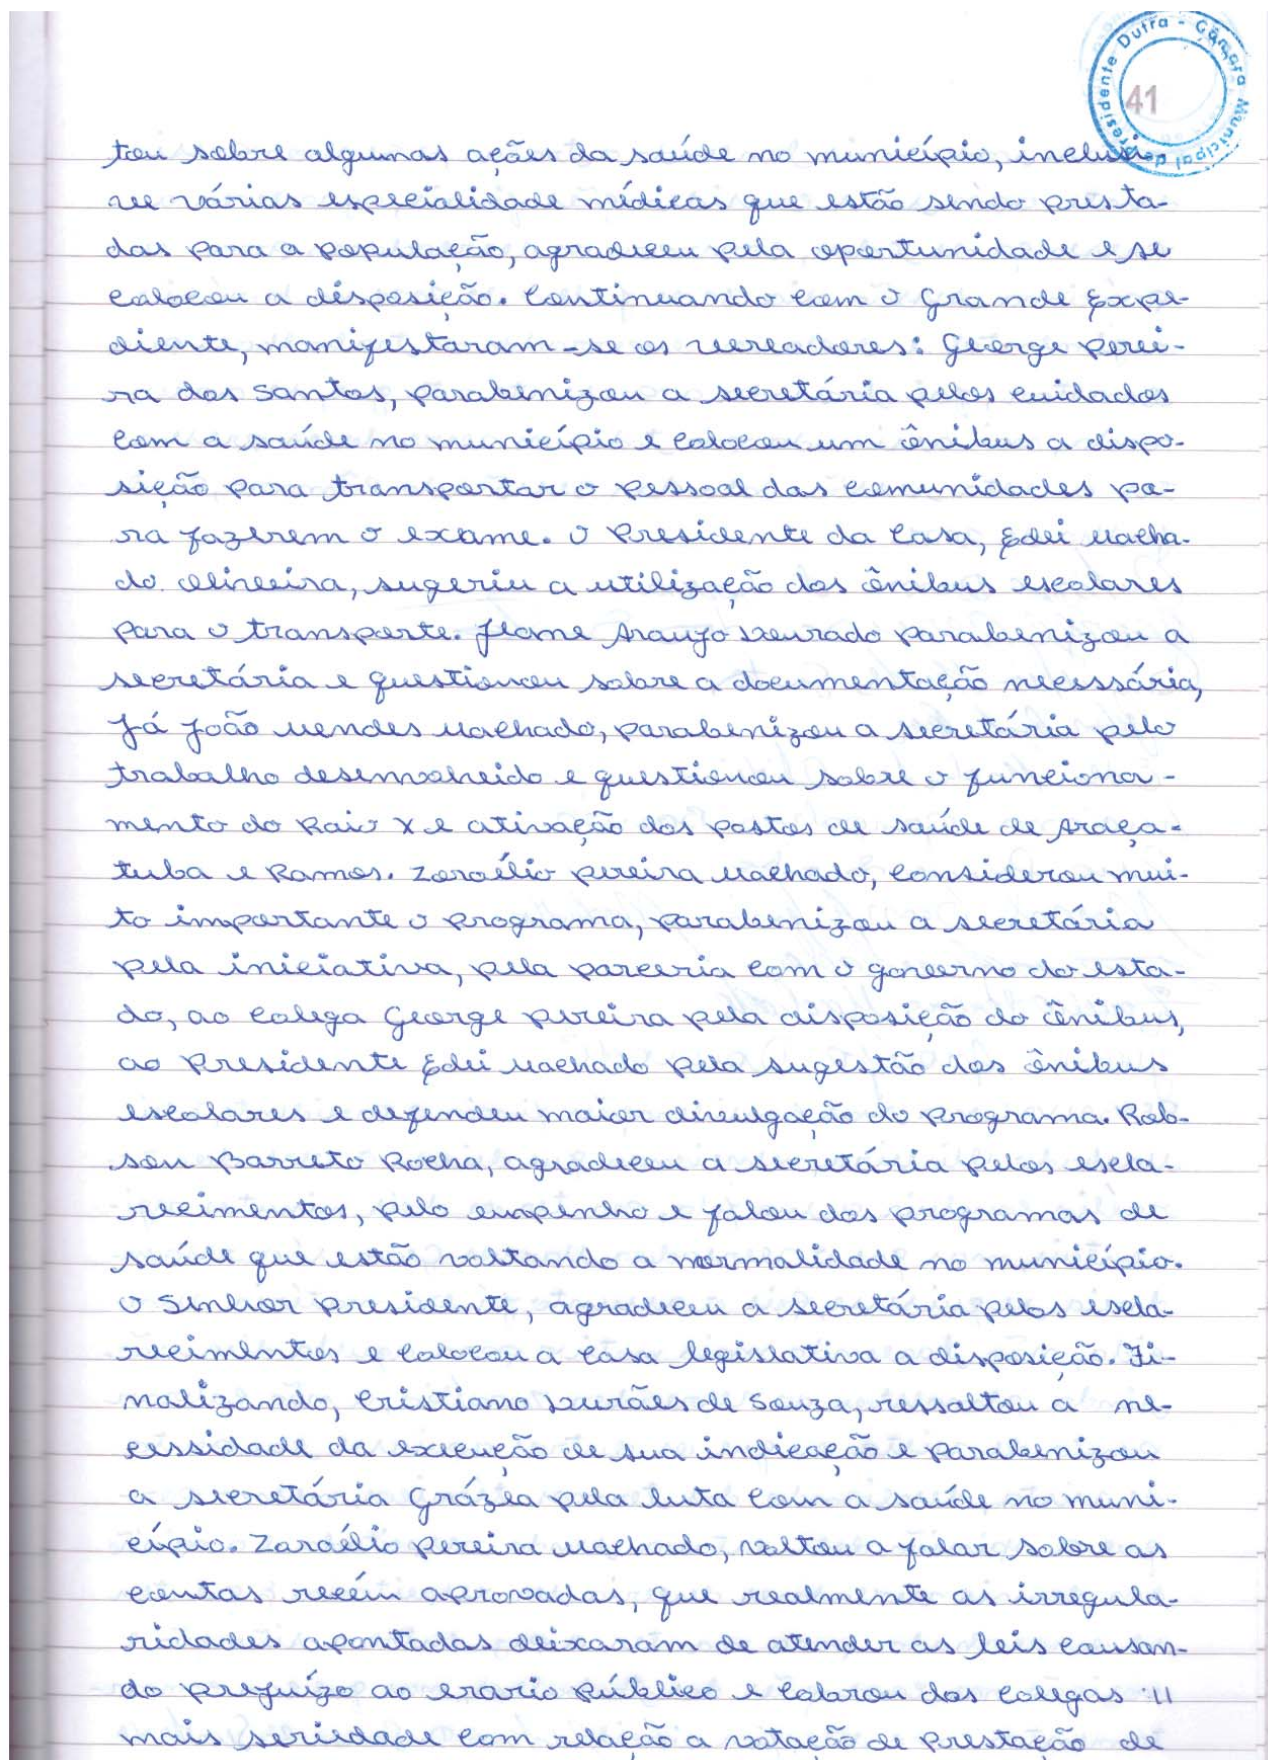 Presidente Dutra - Câmara Municipal de
41
tou sobre algumas ações da saúde no município, inclusi-
ve várias especialidade médicas que estão sendo presta-
das para a população, agradeceu pela oportunidade e se
colocou a disposição. Continuando com o Grande Expe-
diente, manifestaram-se os vereadores: George Perei-
ra dos Santos, parabenizou a secretária pelos cuidados
com a saúde no município e colocou um ônibus a dispo-
sição para transportar o pessoal das comunidades pa-
ra fazerem o exame. O Presidente da Casa, Edei Macha-
do Oliveira, sugeriu a utilização dos ônibus escolares
para o transporte. Araujo Dourado parabenizou a
secretária e questionou sobre a documentação necesssária,
Já João Mendes Machado, parabenizou a secretária pelo
trabalho desenvolvido e questionou sobre o funciona-
mento do Raio X e ativação dos postos de saúde de Araça-
tuba e Ramos. Zaroélio Pereira Machado, considerou mui-
to importante o programa, parabenizou a secretária
pela iniciativa, pela parceria com o governo do esta-
do, ao colega George Pereira pela disposição do ônibus,
ao Presidente Edei Machado pela sugestão dos ônibus
escolares e defendeu maior divulgação do programa. Rob-
son Barreto Rocha, agradeceu a secretária pelos escla-
recimentos, pelo empenho e falou dos programas de
saúde que estão voltando a normalidade no município.
O Senhor presidente, agradeceu a secretária pelos escla-
recimentos e colocou a casa legislativa a disposição. Fi-
nalizando, Cristiano Durães de Souza, ressaltou a ne-
cessidade da execução de sua indicação e parabenizou
a secretária Grázia pela luta com a saúde no muni-
cípio. Zaroélio Pereira Machado, voltou a falar sobre as
contas recém aprovadas, que realmente as irregula-
ridades apontadas deixaram de atender as leis causan-
do prejuízo ao erario público e cobrou dos colegas
mais seriedade com relação a votação de prestação de